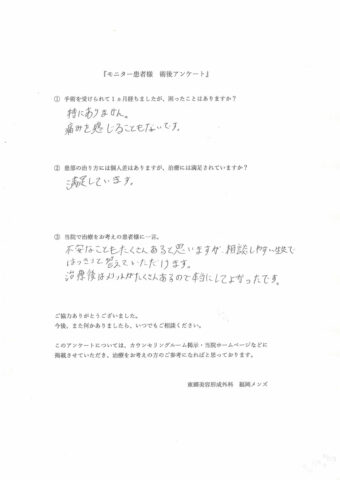 『モニター患者様　術後アンケート』
① 手術を受けられて1ヵ月経ちましたが、困ったことはありますか？
特にありません。
痛みを感じることもないです。
② 患部の治り方には個人差はありますが、治療には満足されていますか？
満足しています。
③ 当院で治療をお考えの患者様に一言。
不安なこともたくさんあると思いますが、相談しやすい
はっきりと答えていただけます。
治療後はメリットがたくさんあるので本当にしてよかったです。
ご協力ありがとうございました。
今後、また何かありましたら、いつでもご相談ください。
このアンケートについては、カウンセリングルーム掲示・当院ホームページなどに
掲載させていただき、治療をお考えの方のご参考になればと思っております。
東郷美容形成外科　福岡メンズ